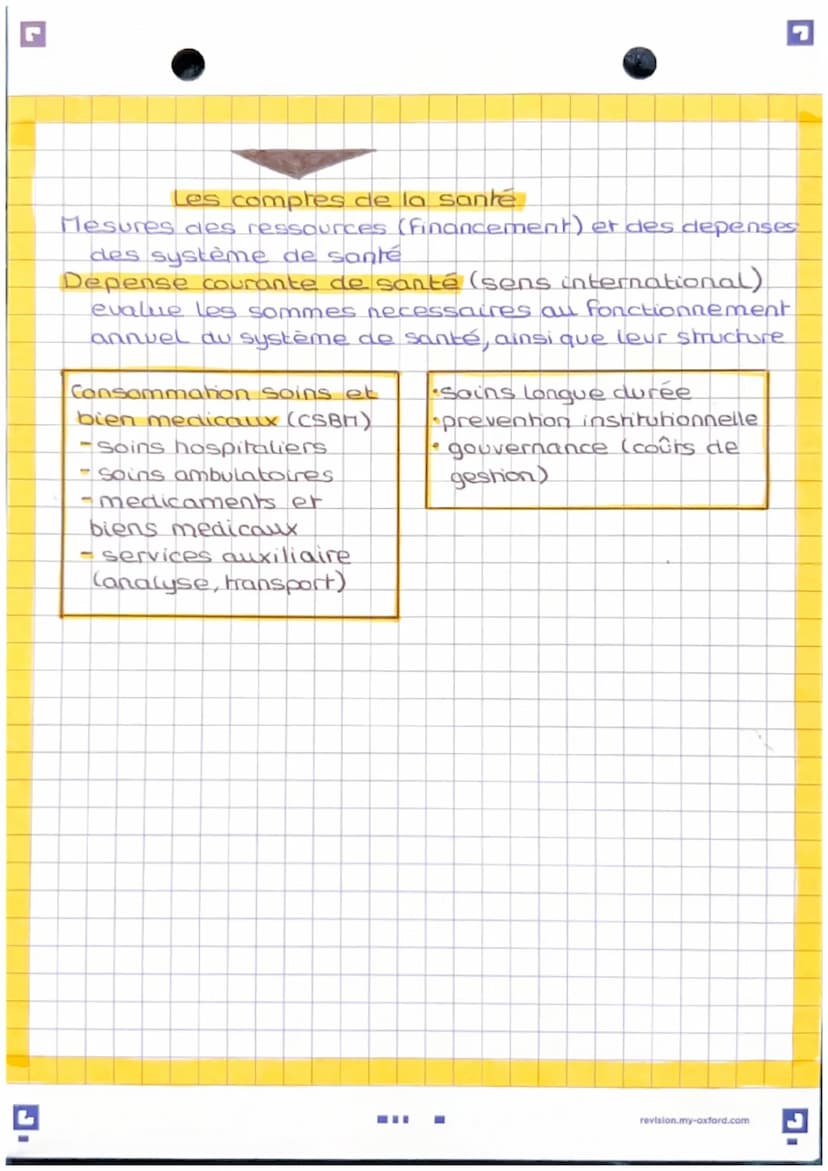 Les comptes de la santé
Mesures des ressources (financement) et des depenses
des système de santé
Depense courante de santé (sens international)
evalue les sommes necessaires au fonctionnement
annuel du système de santé, ainsi que leur structure
Consommation soins et
bien medicaux (CSBM)
- soins hospitaliers
- soins ambulatoires
- medicaments et
biens medicaux
- services auxiliaire
(analyse, transport)
• soins longue durée
• prevention institutionnelle
• gouvernance (coûts de
gestion)
revision.my-oxford.com